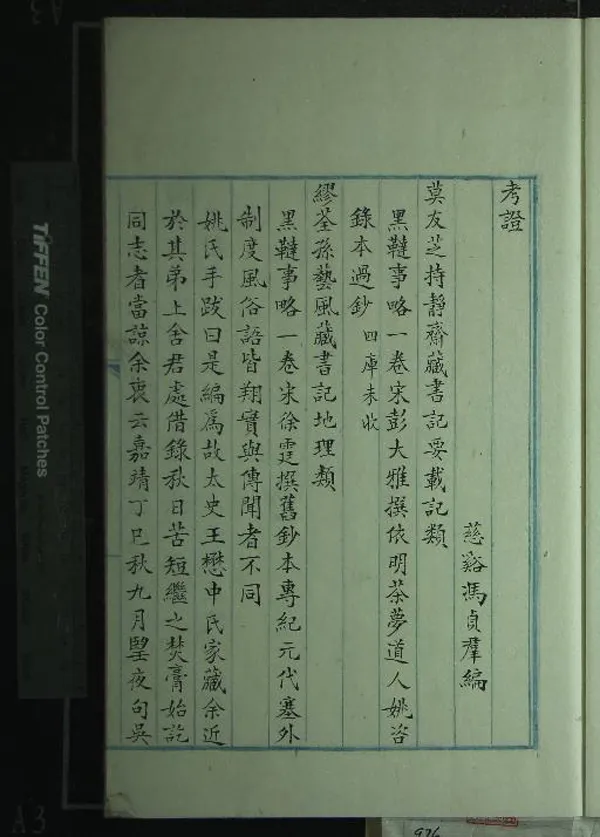 考證
慈谿馮貞羣編
莫友芝持靜齋藏書記要載記類
黑韃事略一卷宋彭大雅撰依明茶夢道人姚咨
錄本過鈔 四庫未收
繆荃孫藝風藏書記地理類
黑韃事略一卷宋徐霆撰舊鈔本專紀元代塞外
制度風俗語皆翔實與傳聞者不同
姚氏手跋曰是編爲故太史王懋中氏家藏余近
於其弟上舍君處借錄秋日苦短繼之焚膏始訖
同志者當諒余衷云嘉靖丁巳秋九月朢夜句吳
TIFFEN Color Control Patches
A3
926